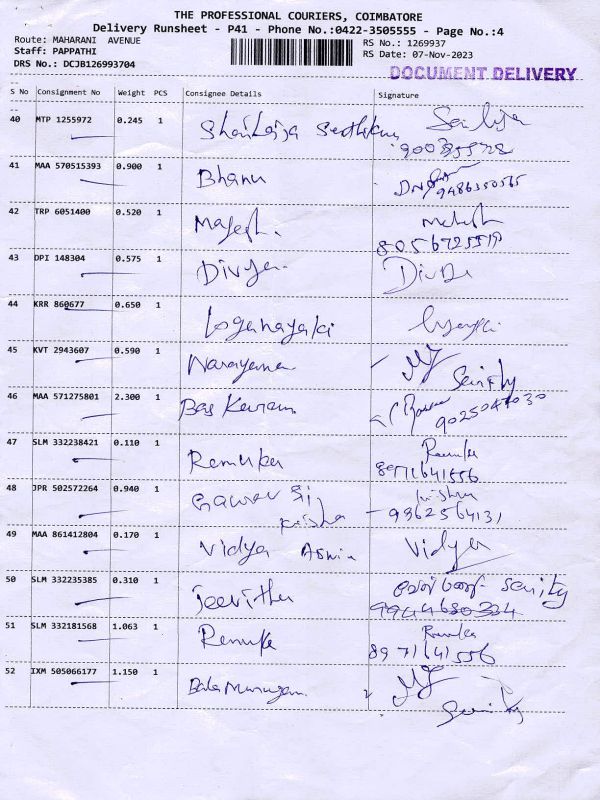 THE PROFESSIONAL COURIERS, COIMBATORE
Delivery Runsheet - P41 - Phone No.:0422-3505555 - Page No.:4
Route: MAHARANI AVENUE
RS No.: 1269937
Staff: PAPPATHI
RS Date: 07-Nov-2023
DRS No.: DCJB126993704
DOCUMENT DELIVERY
S No Consignment No Weight PCS Consignee Details Signature
40 MTP 1255972 0.245 1
41 MAA 570515393 0.900 1 Bhanu
9486350565
42 TRP 6051400 0.520 1 Magesh. Mahesh
43 DPI 148304 0.575 1 Divya. Divya
44 KRR 860677 0.650 1 Loganayaki
45 KVT 2943607 0.590 1 Narayanan
Security
46 MAA 571275801 2.300 1 Bas Karan
9025047030
47 SLM 332238421 0.110 1 Remuka Remuka
8971641556
48 JPR 502572264 0.940 1 Gaurav Sij
Krisha
9962564131
49 MAA 861412804 0.170 1 Vidya Aswin Vidya
50 SLM 332235385 0.310 1 Jeevitha Security
9944680334
51 SLM 332181568 1.063 1 Remuka Remuka
8971641556
52 IXM 505066177 1.150 1 Bala Murugan
Security